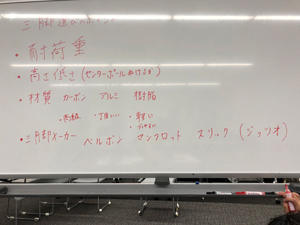 三脚選びのポイント
・耐荷重
・高さ低さ(センターポールぬけるか)
・材質 カーボン アルミ 樹脂
・高級 ・丁度いい ・軽い
・三脚メーカー ベルボン マンフロット スリック (ジッツオ)